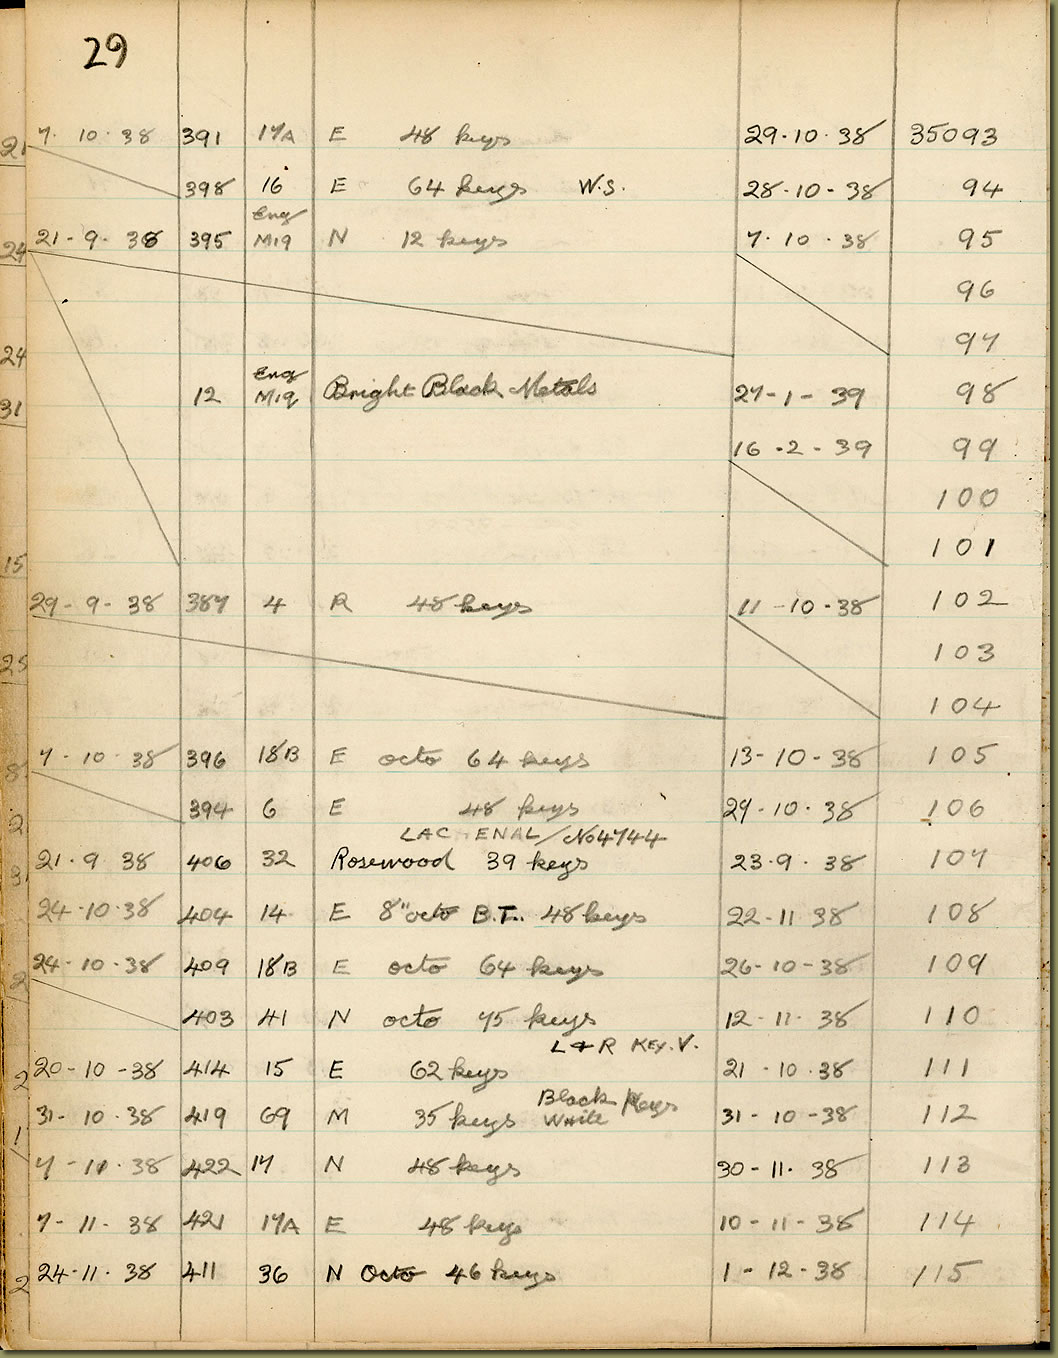 29
21 7. 10. 38 391 17A E 48 keys 29.10.38 35093
398 16 E 64 keys W.S. 28.10-38 94
Eng
24 21-9.38 395 M19 N 12 keys 7.10.38 95
96
24 97
Eng
31 12 M19 Bright Black Metals 27-1-39 98
16.2-39 99
100
15 101
29-9-38 387 4 R 48 keys 11-10-38 102
25 103
104
8 7-10.38 396 18B E octo 64 keys 13-10-38 105
2 394 6 E 48 keys 29-10.38 106
LACHENAL/No4744
3 21.9 38 406 32 Rosewood 39 keys 23.9.38 107
24.10.38 404 14 E 8" octo B.T. 48 keys 22-11 38 108
2 24-10-38 409 18B E octo 64 keys 26-10-38 109
403 41 N octo 75 keys 12-11.38 110
L & R Key.V.
2 20-10-38 414 15 E 62 keys 21.10.38 111
Black Keys
1 31-10.38 419 69 M 35 keys White 31-10-38 112
7-11.38 422 17 N 48 keys 30-11.38 113
7-11.38 421 17A E 48 keys 10-11-38 114
2 24-11.38 411 36 N Octo 46 keys 1-12-38 115